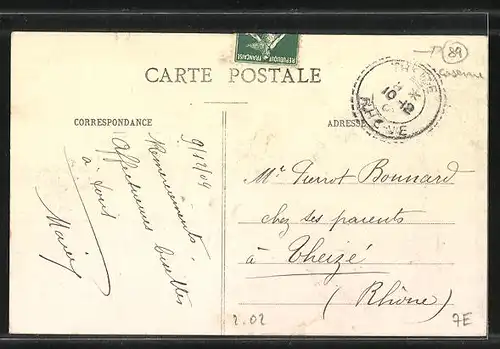 RÉPUBLIQUE FRANÇAISE
89
Caserne
CARTE POSTALE
CORRESPONDANCE
ADRESSE
THEIZE
10-12
RHONE
9/12/09
Remerciements.
Affectueuses
à tous
Mr Pierrot Bonnard
chez ses parents
à Theizé
(Rhône)
2.02
7E